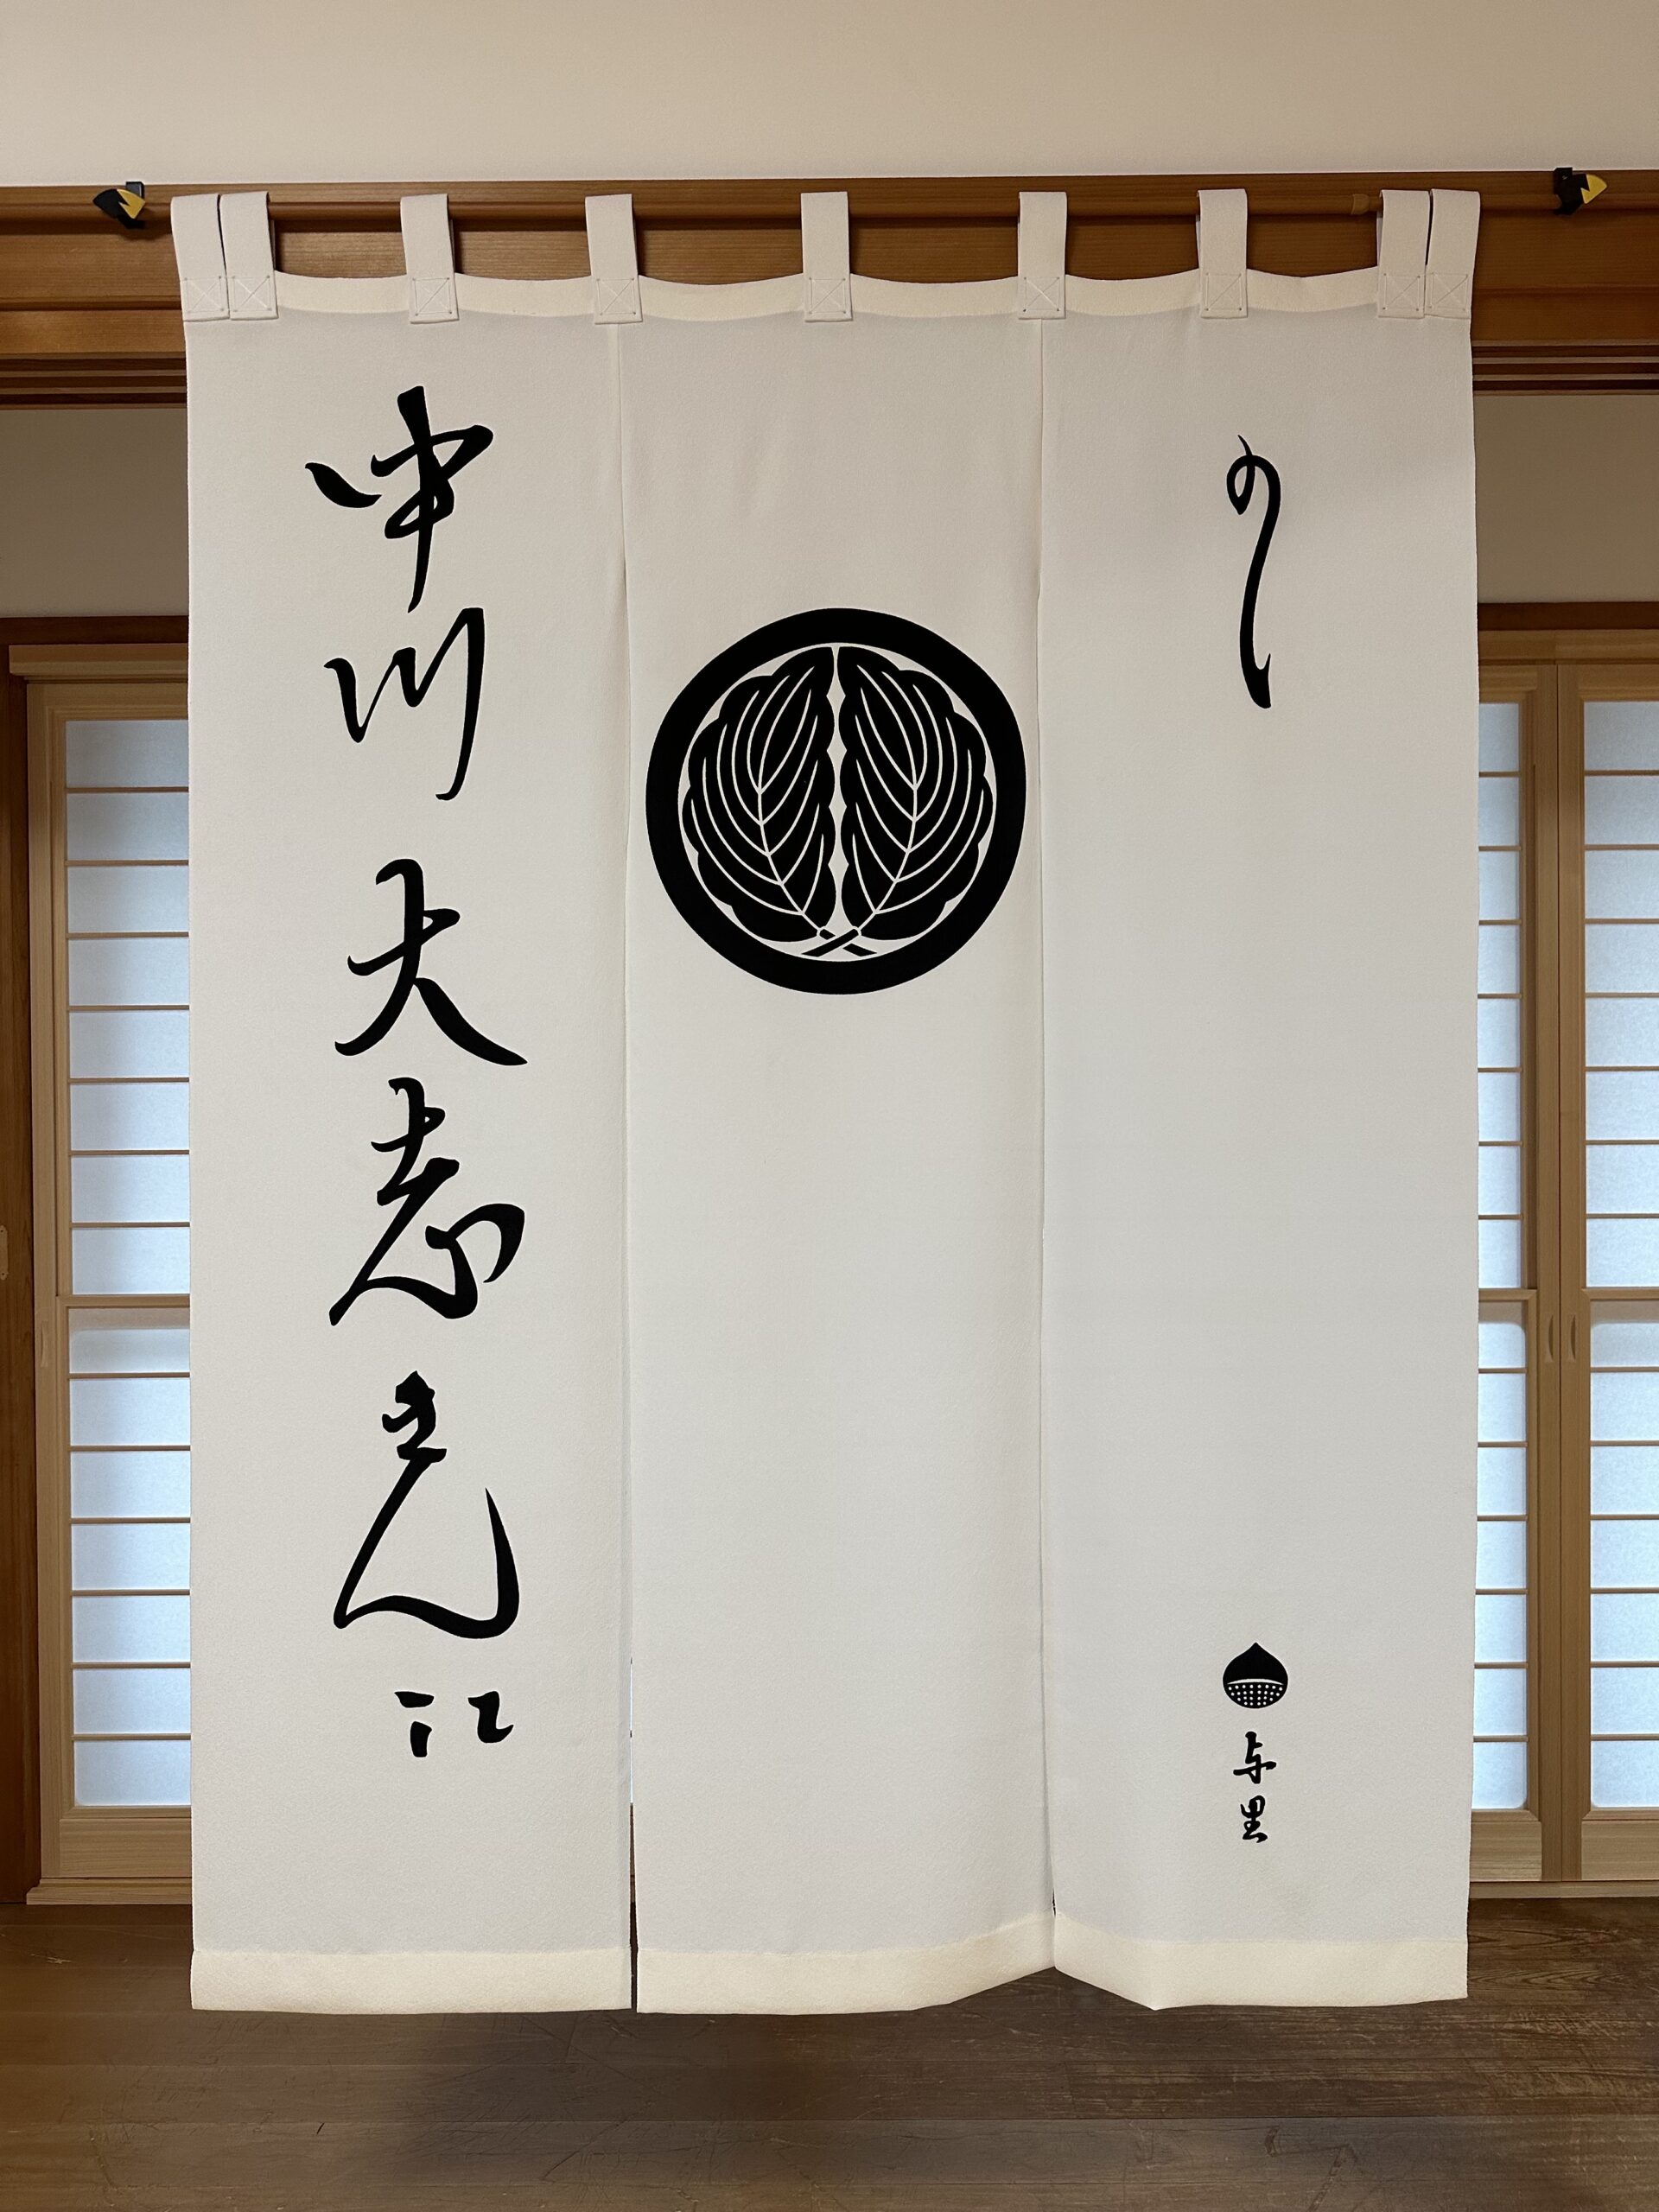 のし
与里
中川大志さん江